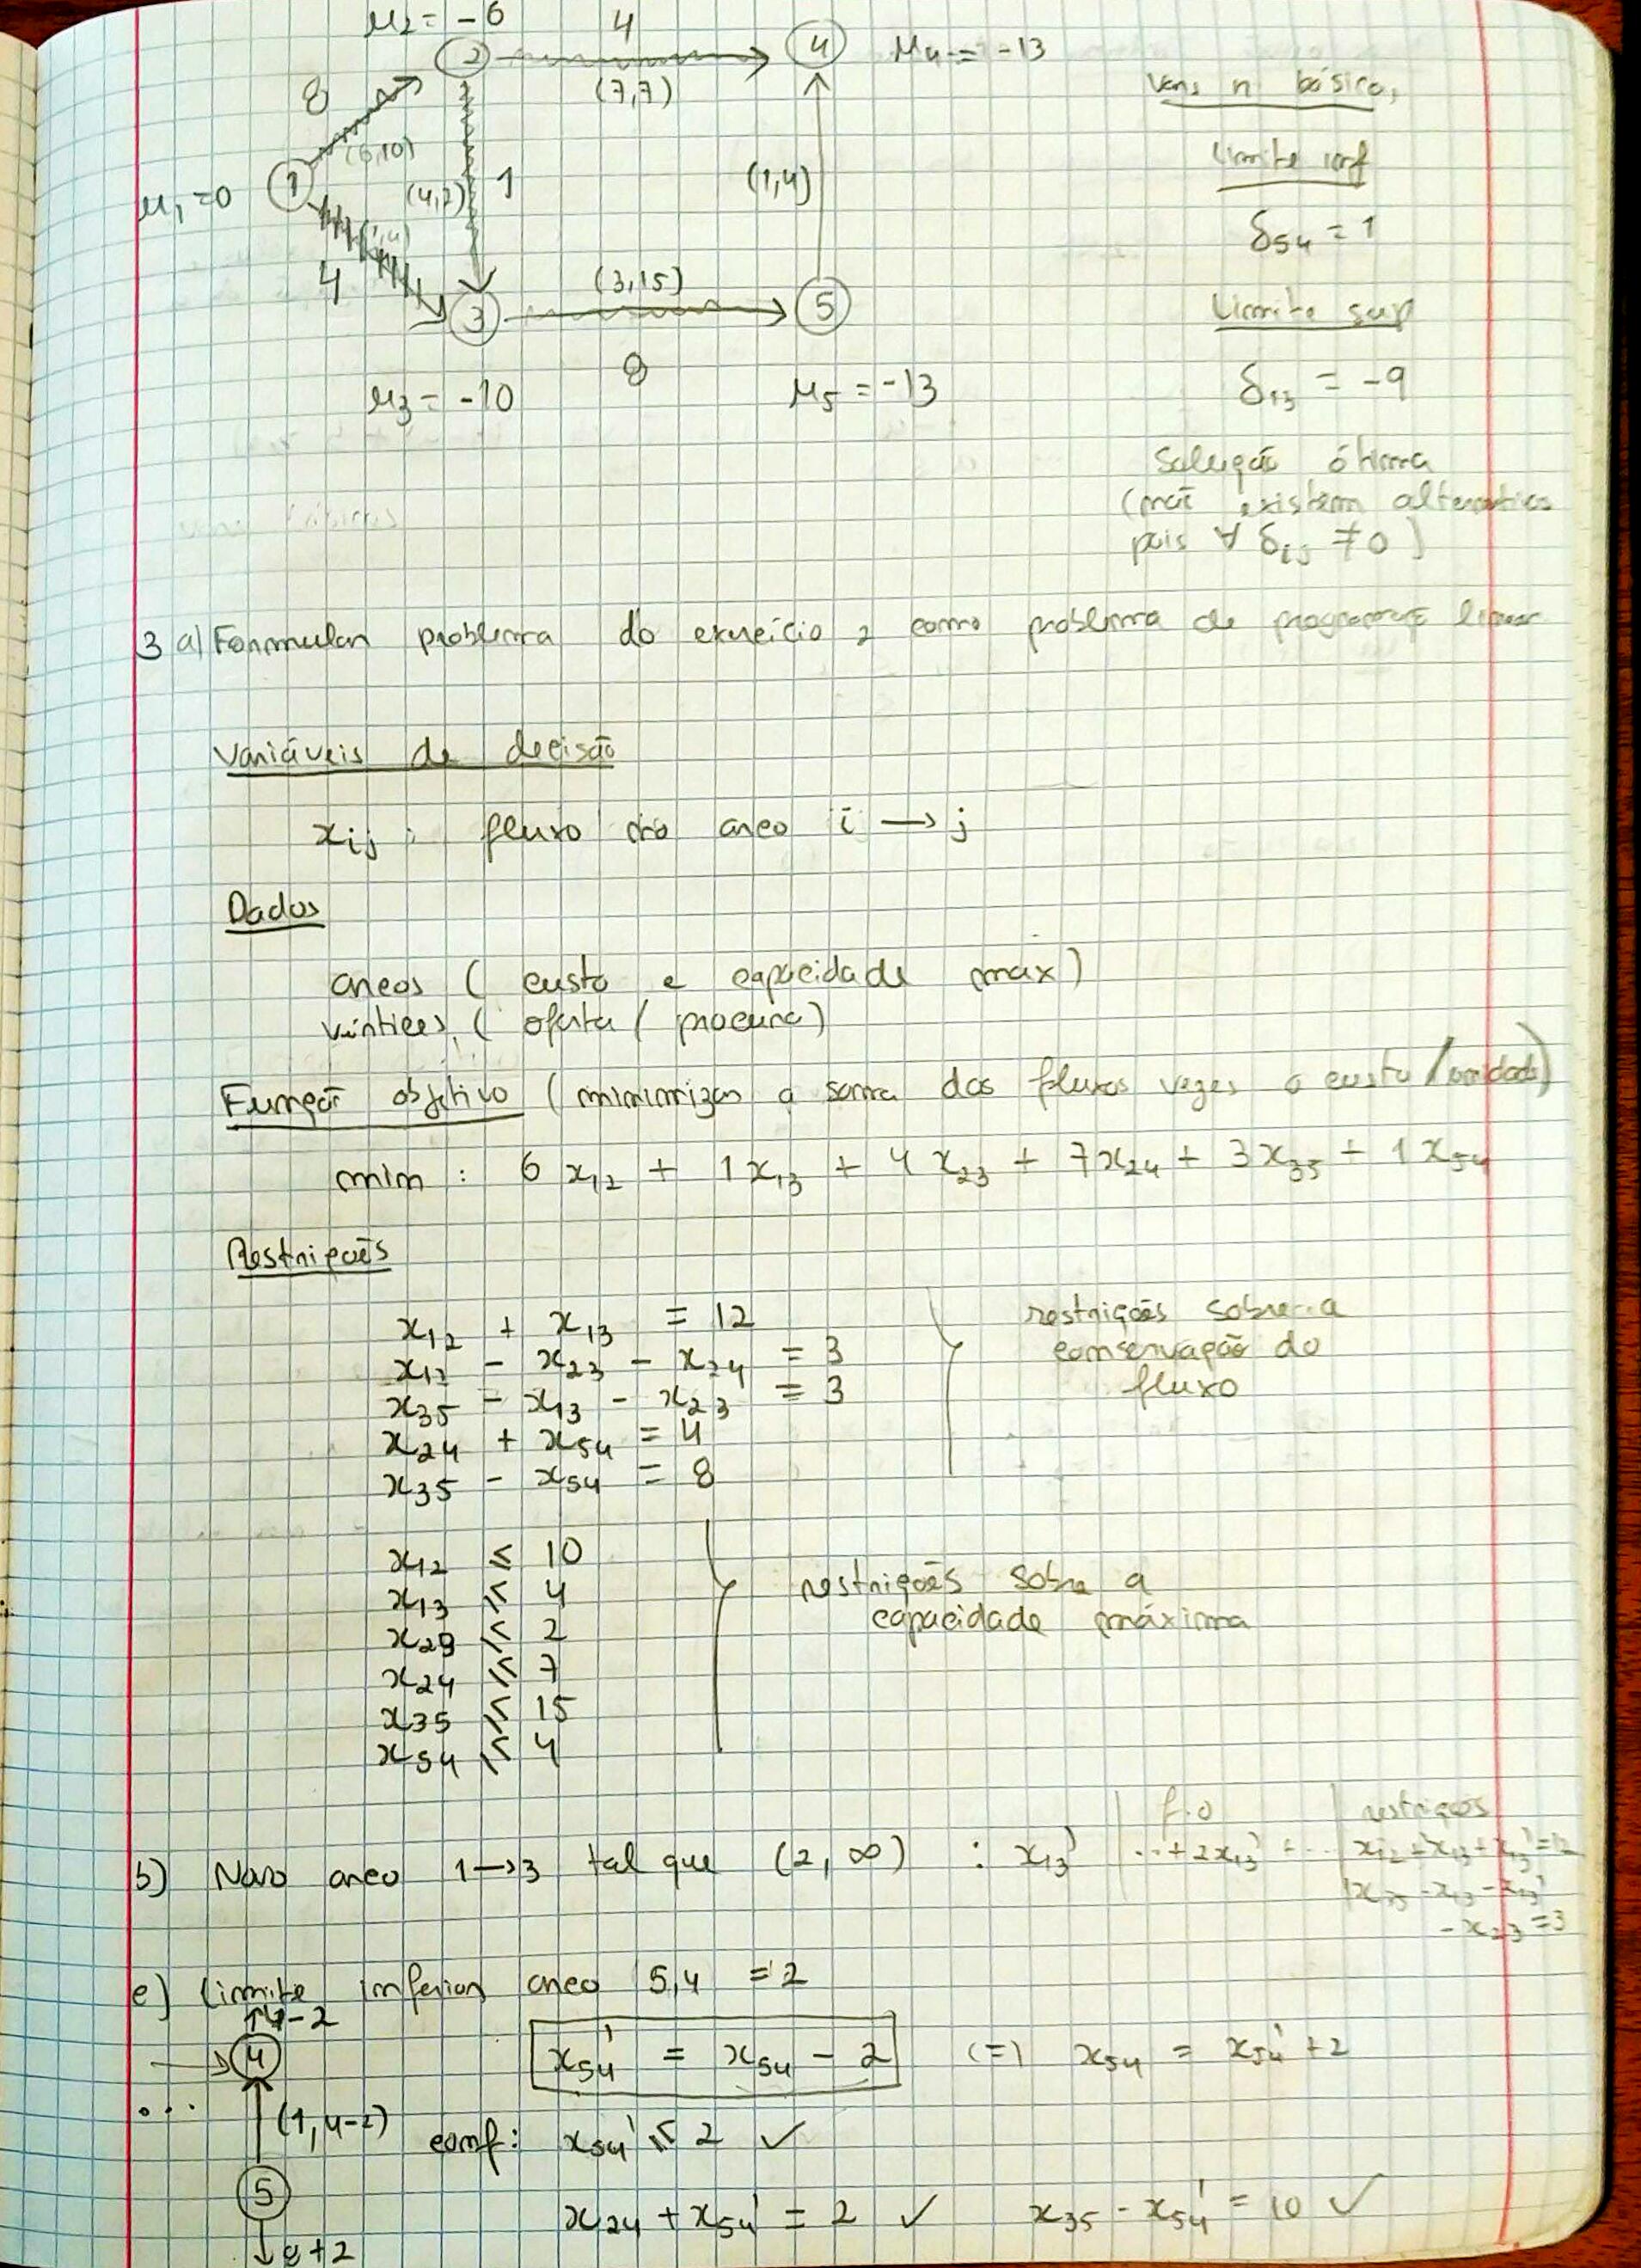 μ₂ = -6
4
② ④ μ₄ = -13
8
(7,7)
vars n básicas
(6,10)
limite inf
μ₁ = 0 ① (4,2) 1 (1,4)
(1,4)
δ₅₄ = 1
4
(3,15)
③ ⑤
limite sup
8
μ₃ = -10 μ₅ = -13
δ₁₃ = -9
Solução ótima
(não existem alternativas
pois ∀ δᵢⱼ ≠ 0)
3 a) Formular problema do exercício 2 como problema de programação linear
Variáveis de decisão
xᵢⱼ : fluxo no arco i → j
Dados
arcos ( custo e capacidade max)
vértices ( oferta / procura)
Função objetivo (minimizar a soma dos fluxos vezes o custo / unidade)
min : 6 x₁₂ + 1 x₁₃ + 4 x₂₃ + 7 x₂₄ + 3 x₃₅ + 1 x₅₄
Restrições
x₁₂ + x₁₃ = 12
x₁₂ - x₂₃ - x₂₄ = 3
x₃₅ - x₁₃ - x₂₃ = 3
x₂₄ + x₅₄ = 4
x₃₅ - x₅₄ = 8
restrições sobre a
conservação do
fluxo
x₁₂ ≤ 10
x₁₃ ≤ 4
x₂₃ ≤ 2
x₂₄ ≤ 7
x₃₅ ≤ 15
x₅₄ ≤ 4
restrições sobre a
capacidade máxima
f.o restrições
b) Novo arco 1→3 tal que (2, ∞) : x₁₃' ..+ 2x₁₃' + ... x₁₂ + x₁₃ + x₁₃' = 12
x₃₅ - x₁₃ - x₁₃'
- x₂₃ = 3
c) Limite inferior arco 5,4 = 2
↑4-2
④ x₅₄' = x₅₄ - 2 (=) x₅₄ = x₅₄' + 2
...
(1,4-2) conf: x₅₄' ≤ 2 ✓
⑤
x₂₄ + x₅₄' = 2 ✓ x₃₅ - x₅₄' = 10 ✓
↓8+2